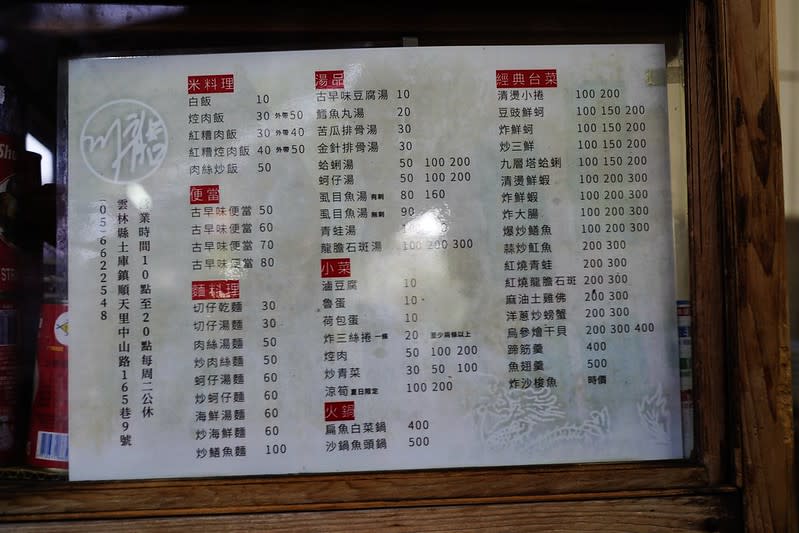 米料理
白飯 10
焢肉飯 30 外帶50
紅糟肉飯 30 外帶40
紅糟焢肉飯 40 外帶50
肉絲炒飯 50
便當
古早味便當 50
古早味便當 60
古早味便當 70
古早味便當 80
麵料理
切仔乾麵 30
切仔湯麵 30
肉絲湯麵 50
炒肉絲麵 50
蚵仔湯麵 60
炒蚵仔麵 60
海鮮湯麵 60
炒海鮮麵 60
炒鱔魚麵 100
湯品
古早味豆腐湯 10
鱈魚丸湯 20
苦瓜排骨湯 30
金針排骨湯 30
蛤蜊湯 50 100 200
蚵仔湯 50 100 200
虱目魚湯 有刺 80 160
虱目魚湯 無刺 90
青蛙湯
龍膽石斑湯 100 200 300
小菜
滷豆腐 10
魯蛋 10
荷包蛋 10
炸三絲捲 一條 20 至少兩條以上
焢肉 50 100 200
炒青菜 30 50 100
涼筍 夏日限定 100 200
火鍋
扁魚白菜鍋 400
沙鍋魚頭鍋 500
經典台菜
清燙小捲 100 200
豆豉鮮蚵 100 150 200
炸鮮蚵 100 150 200
炒三鮮 100 150 200
九層塔蛤蜊 100 150 200
清燙鮮蝦 100 200 300
炸鮮蝦 100 200 300
炸大腸 100 200 300
爆炒鱔魚 100 200 300
蒜炒魟魚 200 300
紅燒青蛙 200 300
紅燒龍膽石斑 200 300
麻油土雞佛 200 300
洋蔥炒螃蟹 200 300
烏參燴干貝 200 300 400
蹄筋羹 400
魚翅羹 500
炸沙梭魚 時價
業時間10點至20點每周二公休
雲林縣土庫鎮順天里中山路165巷9號
(05)6622548